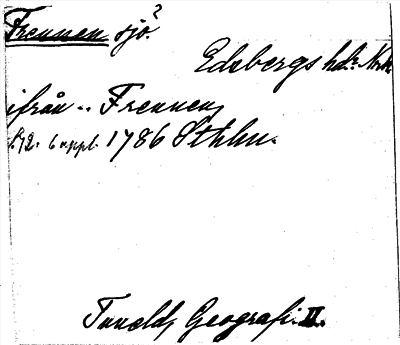 Frennen sjö?
Edsbergs hd: Nrk.
ifrån .. Frennen,
s. 72. 6 uppl. 1786 Sthlm.
Tunelds Geografi. II.